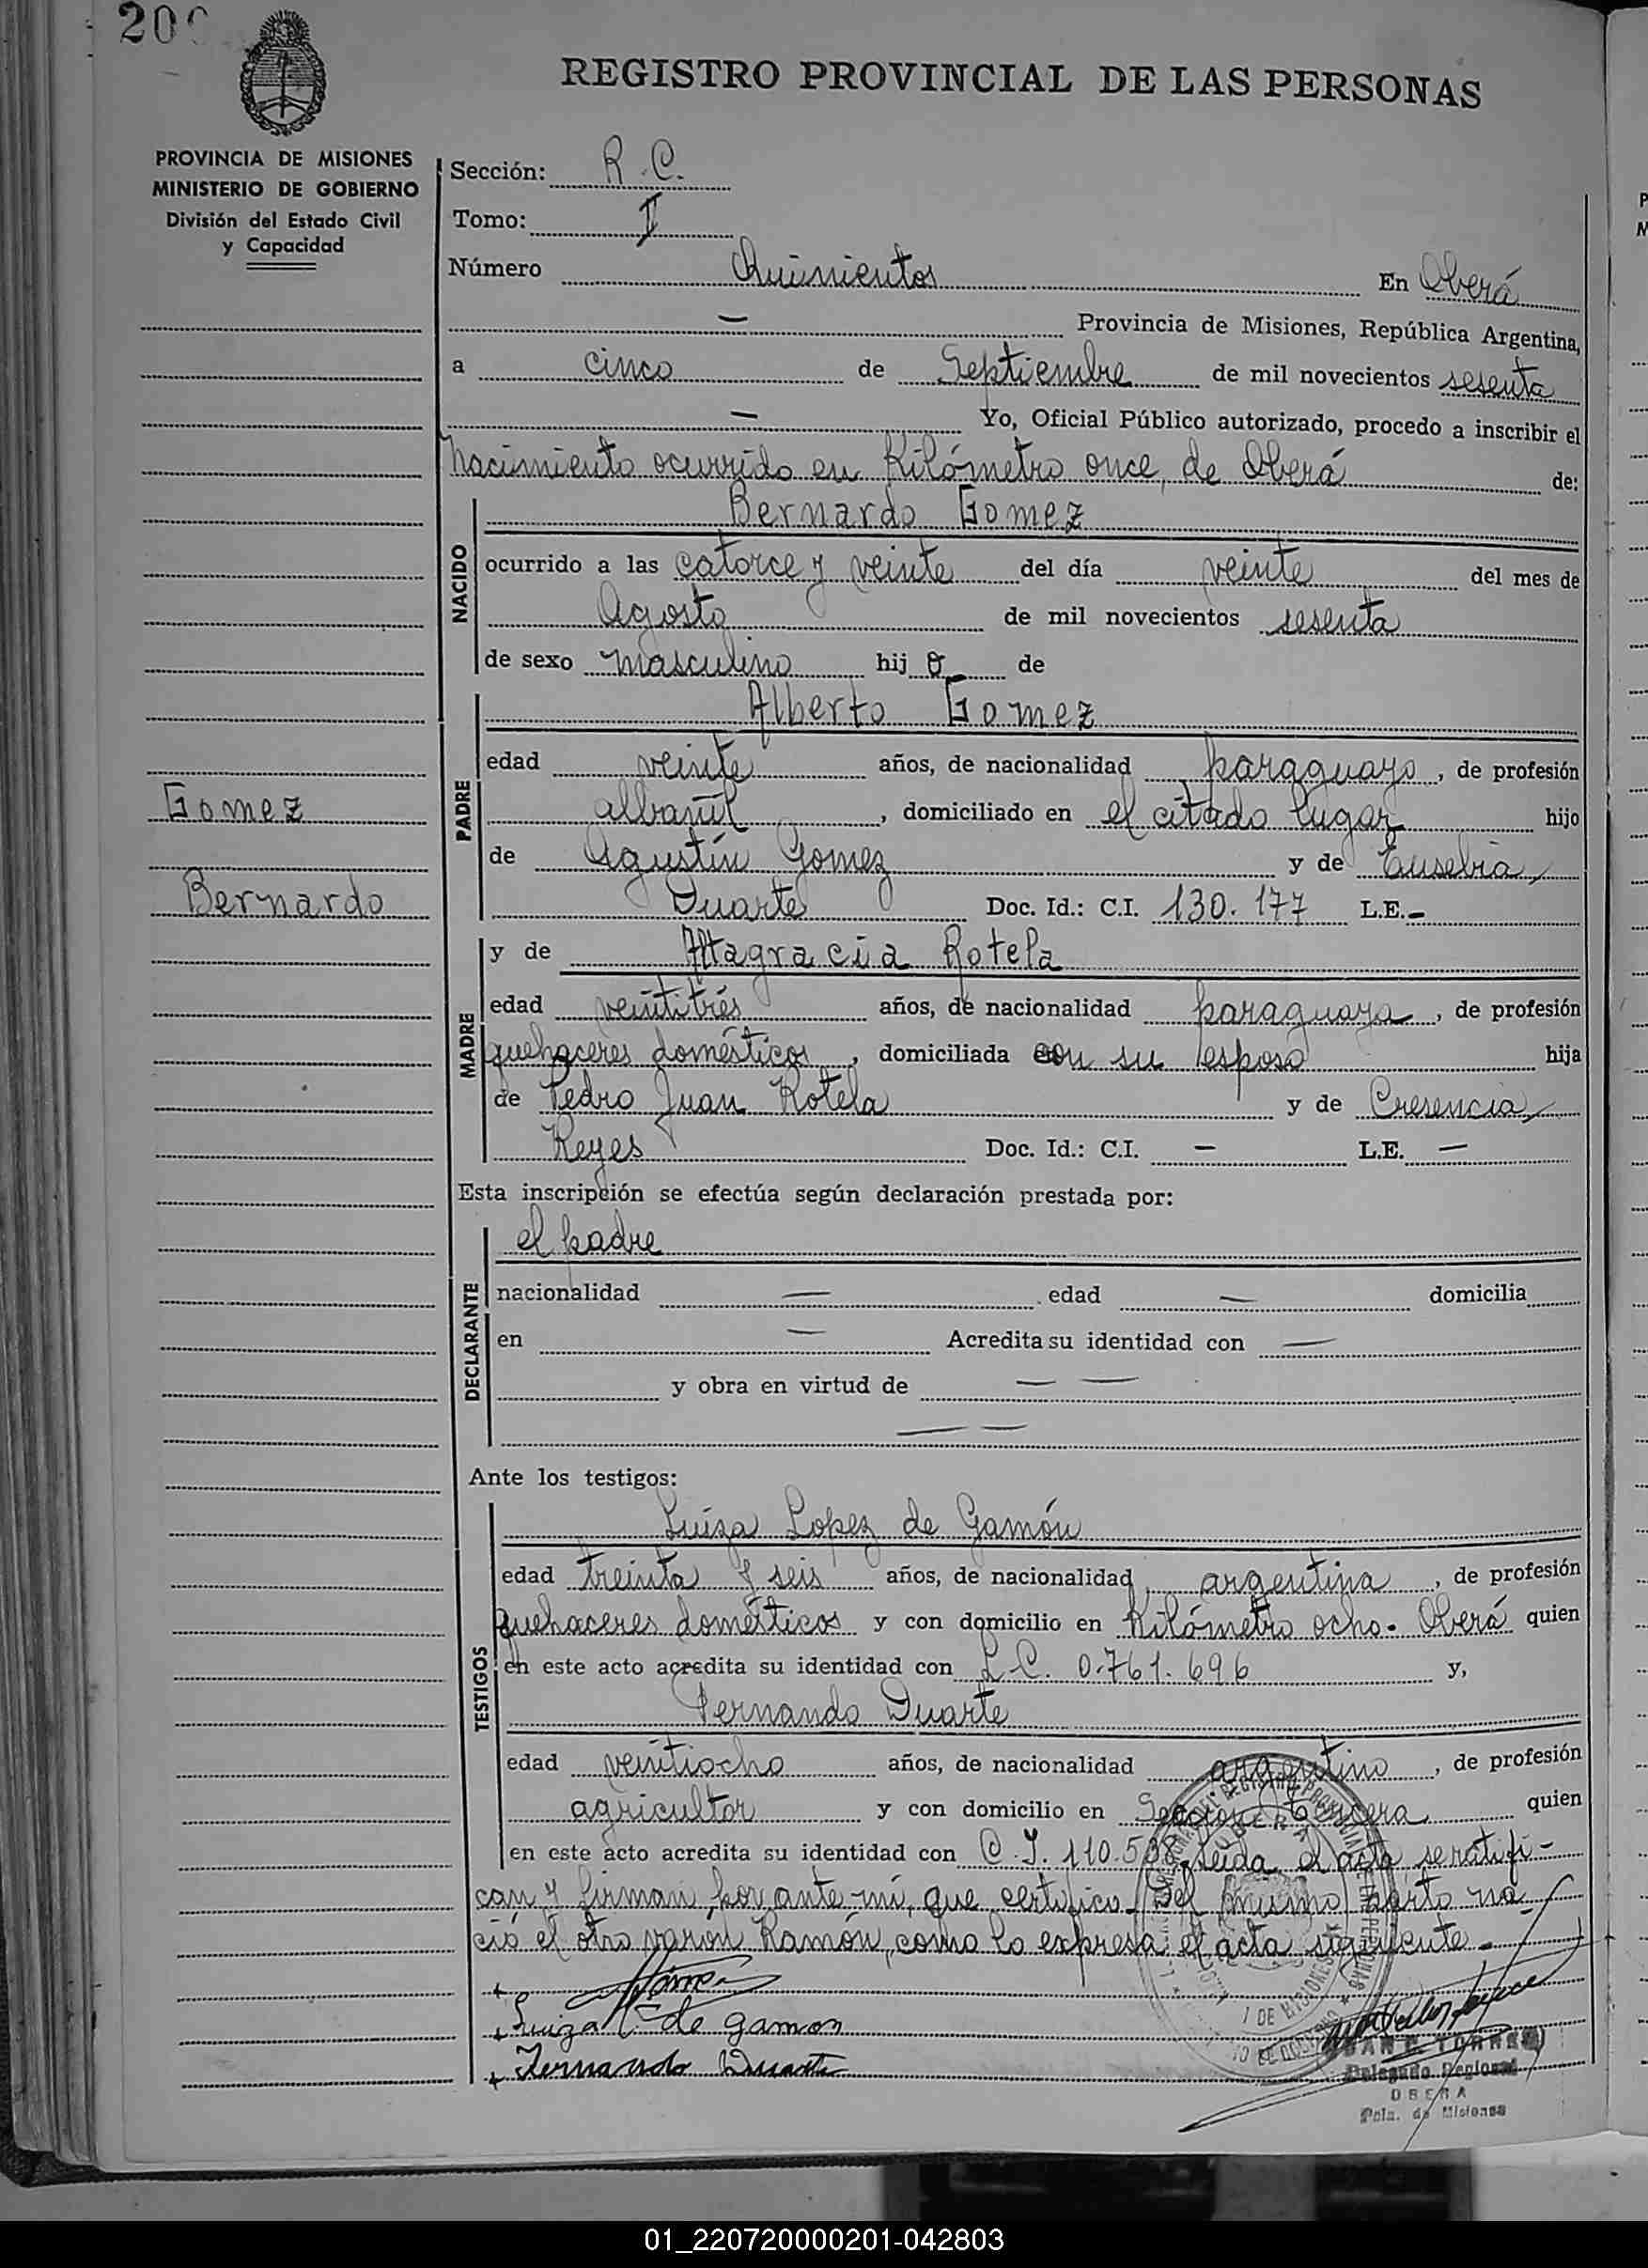 200
REGISTRO PROVINCIAL DE LAS PERSONAS
PROVINCIA DE MISIONES
MINISTERIO DE GOBIERNO
División del Estado Civil
y Capacidad
Sección: R.C.
Tomo: II
Número Quinientos En Oberá
— Provincia de Misiones, República Argentina,
a cinco de Septiembre de mil novecientos sesenta
— Yo, Oficial Público autorizado, procedo a inscribir el
Nacimiento ocurrido en Kilómetro once, de Oberá de:
NACIDO
Bernardo Gomez
ocurrido a las catorce y veinte del día veinte del mes de
Agosto de mil novecientos sesenta
de sexo masculino hij o de
PADRE
Alberto Gomez
edad veinte años, de nacionalidad paraguayo, de profesión
albañil, domiciliado en el citado lugar hijo
de Agustín Gomez y de Eusebia
Duarte Doc. Id.: C.I. 130.177 L.E. –
Gomez
Bernardo
MADRE
y de Altagracia Rotela
edad veintitrés años, de nacionalidad paraguaya, de profesión
quehaceres domésticos, domiciliada con su esposo hija
de Pedro Juan Rotela y de Cresencia
Reyes Doc. Id.: C.I. — L.E. —
Esta inscripción se efectúa según declaración prestada por:
DECLARANTE
el padre
nacionalidad — edad — domicilia
en — Acredita su identidad con —
y obra en virtud de — —
— —
Ante los testigos:
TESTIGOS
Luiza Lopez de Gamón
edad treinta y seis años, de nacionalidad argentina, de profesión
quehaceres domésticos y con domicilio en Kilómetro ocho - Oberá quien
en este acto acredita su identidad con L.C. 0.761.696 y,
Fernando Duarte
edad veintiocho años, de nacionalidad argentino, de profesión
agricultor y con domicilio en Seccion Tercera quien
en este acto acredita su identidad con C.I. 110.538, Leida el acta se ratifi-
can y firman por ante mí, que certifico. Del mismo parto na-
ció el otro varón Ramón, como lo expresa el acta siguiente.-
+ Gómez
+ Luiza L de gamon
+ Fernando Duarte
Delegado Regional
OBERA
Pcia. de Misiones
01_220720000201-042803